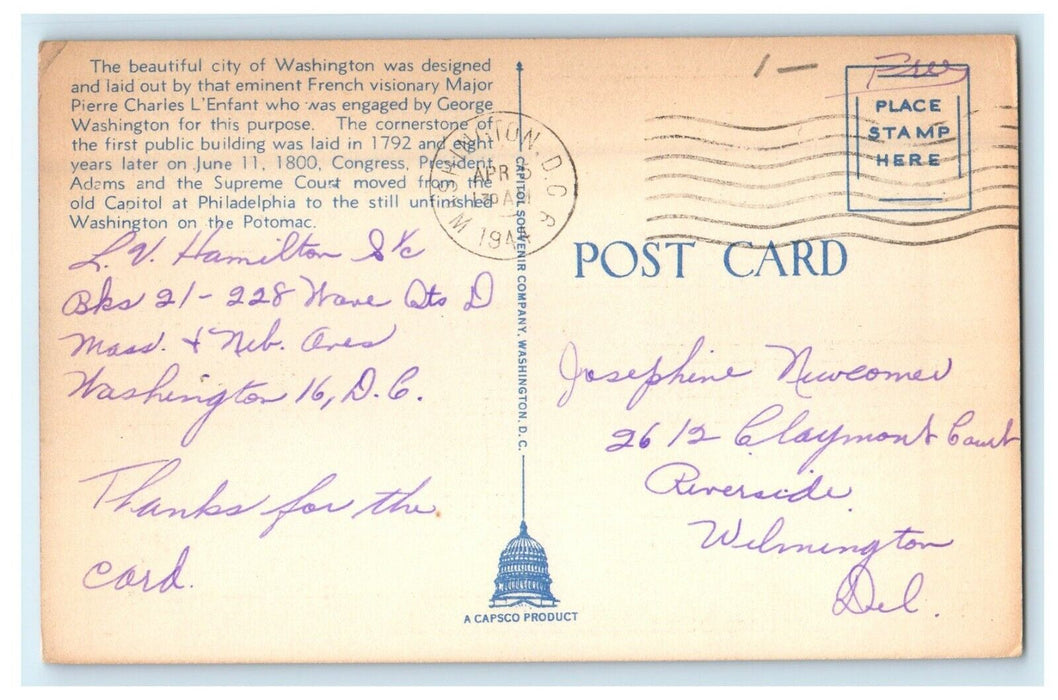 The beautiful city of Washington was designed
and laid out by that eminent French visionary Major
Pierre Charles L'Enfant who was engaged by George
Washington for this purpose. The cornerstone of
the first public building was laid in 1792 and eight
years later on June 11, 1800, Congress, President
Adams and the Supreme Court moved from the
old Capitol at Philadelphia to the still unfinished
Washington on the Potomac.
L. V. Hamilton S 1/c
Bks 21 - 228 Wave Qts D
Mass. & Neb. Aves
Washington 16, D.C.
Thanks for the
card.
WASHINGTON, D.C.
APR
AM
194
CAPITOL SOUVENIR COMPANY, WASHINGTON, D.C.
A CAPSCO PRODUCT
1 -
Free
PLACE
STAMP
HERE
POST CARD
Josephine Newcomer
2612 Claymont Court
Riverside
Wilmington
Del.